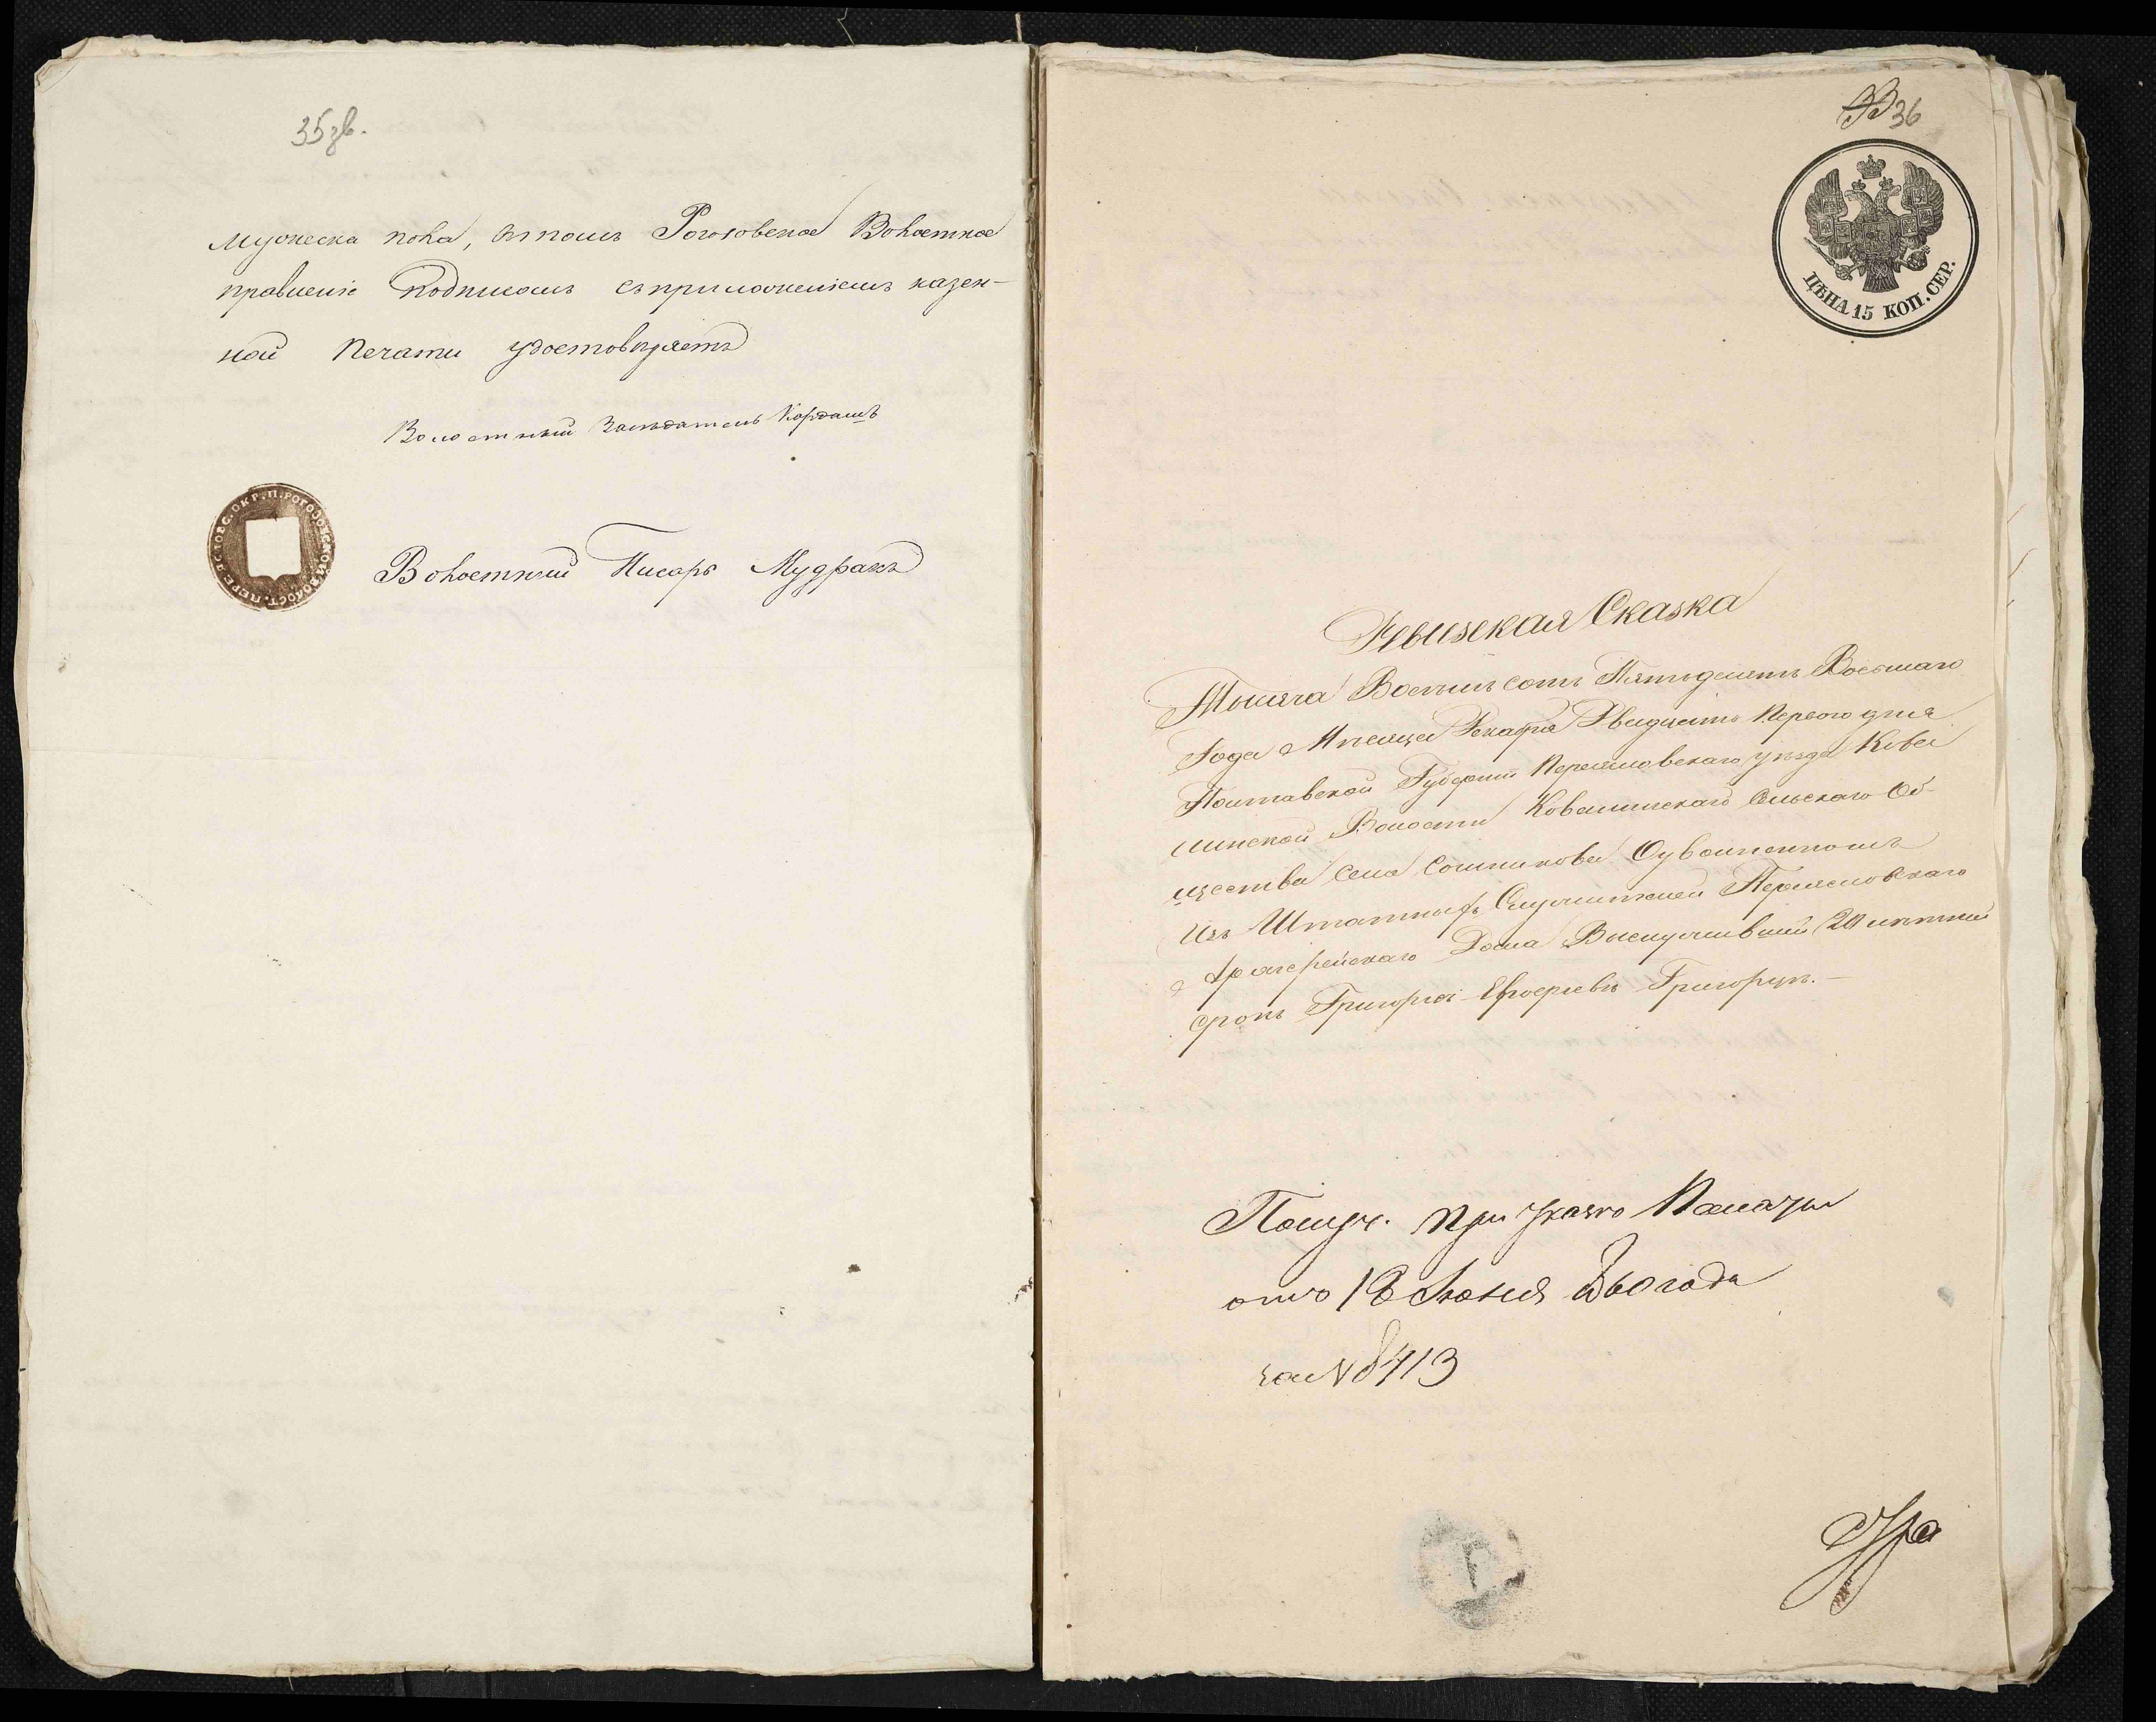 35 зв.
мужеска пола, въ томъ Рогозовское Волостное
правленіе подписомъ съ приложеніемъ казен-
ной печати удостовѣряетъ
Волостный Засѣдатель Кордашъ
ПЕРЕЯСЛОВС. ОКР. П. РОГОЗОВСКОЙ ВОЛОСТ.
Волостный Писарь Мудракъ
36
ЦѢНА 15 КОП. СЕР.
Ревизская Сказка
Тысяча Восемьсотъ Пятьдесятъ Восьмаго
Года Мѣсяца Декабря Двадцать Первого дня
Полтавской Губерніи Переяславскаго уѣзда Кова
линской Волости Ковалинскаго Сельскаго Об-
щества Села Сошникова О уволенномъ
Изъ Штатныхъ Служителей Переяславскаго
Архіерейскаго Дома Выслужившій 20 лѣтній
срокъ Григорія Григорцѣ.—
Получ. при указѣ Палаты
отъ 18 Іюня 860 года
за № 8413